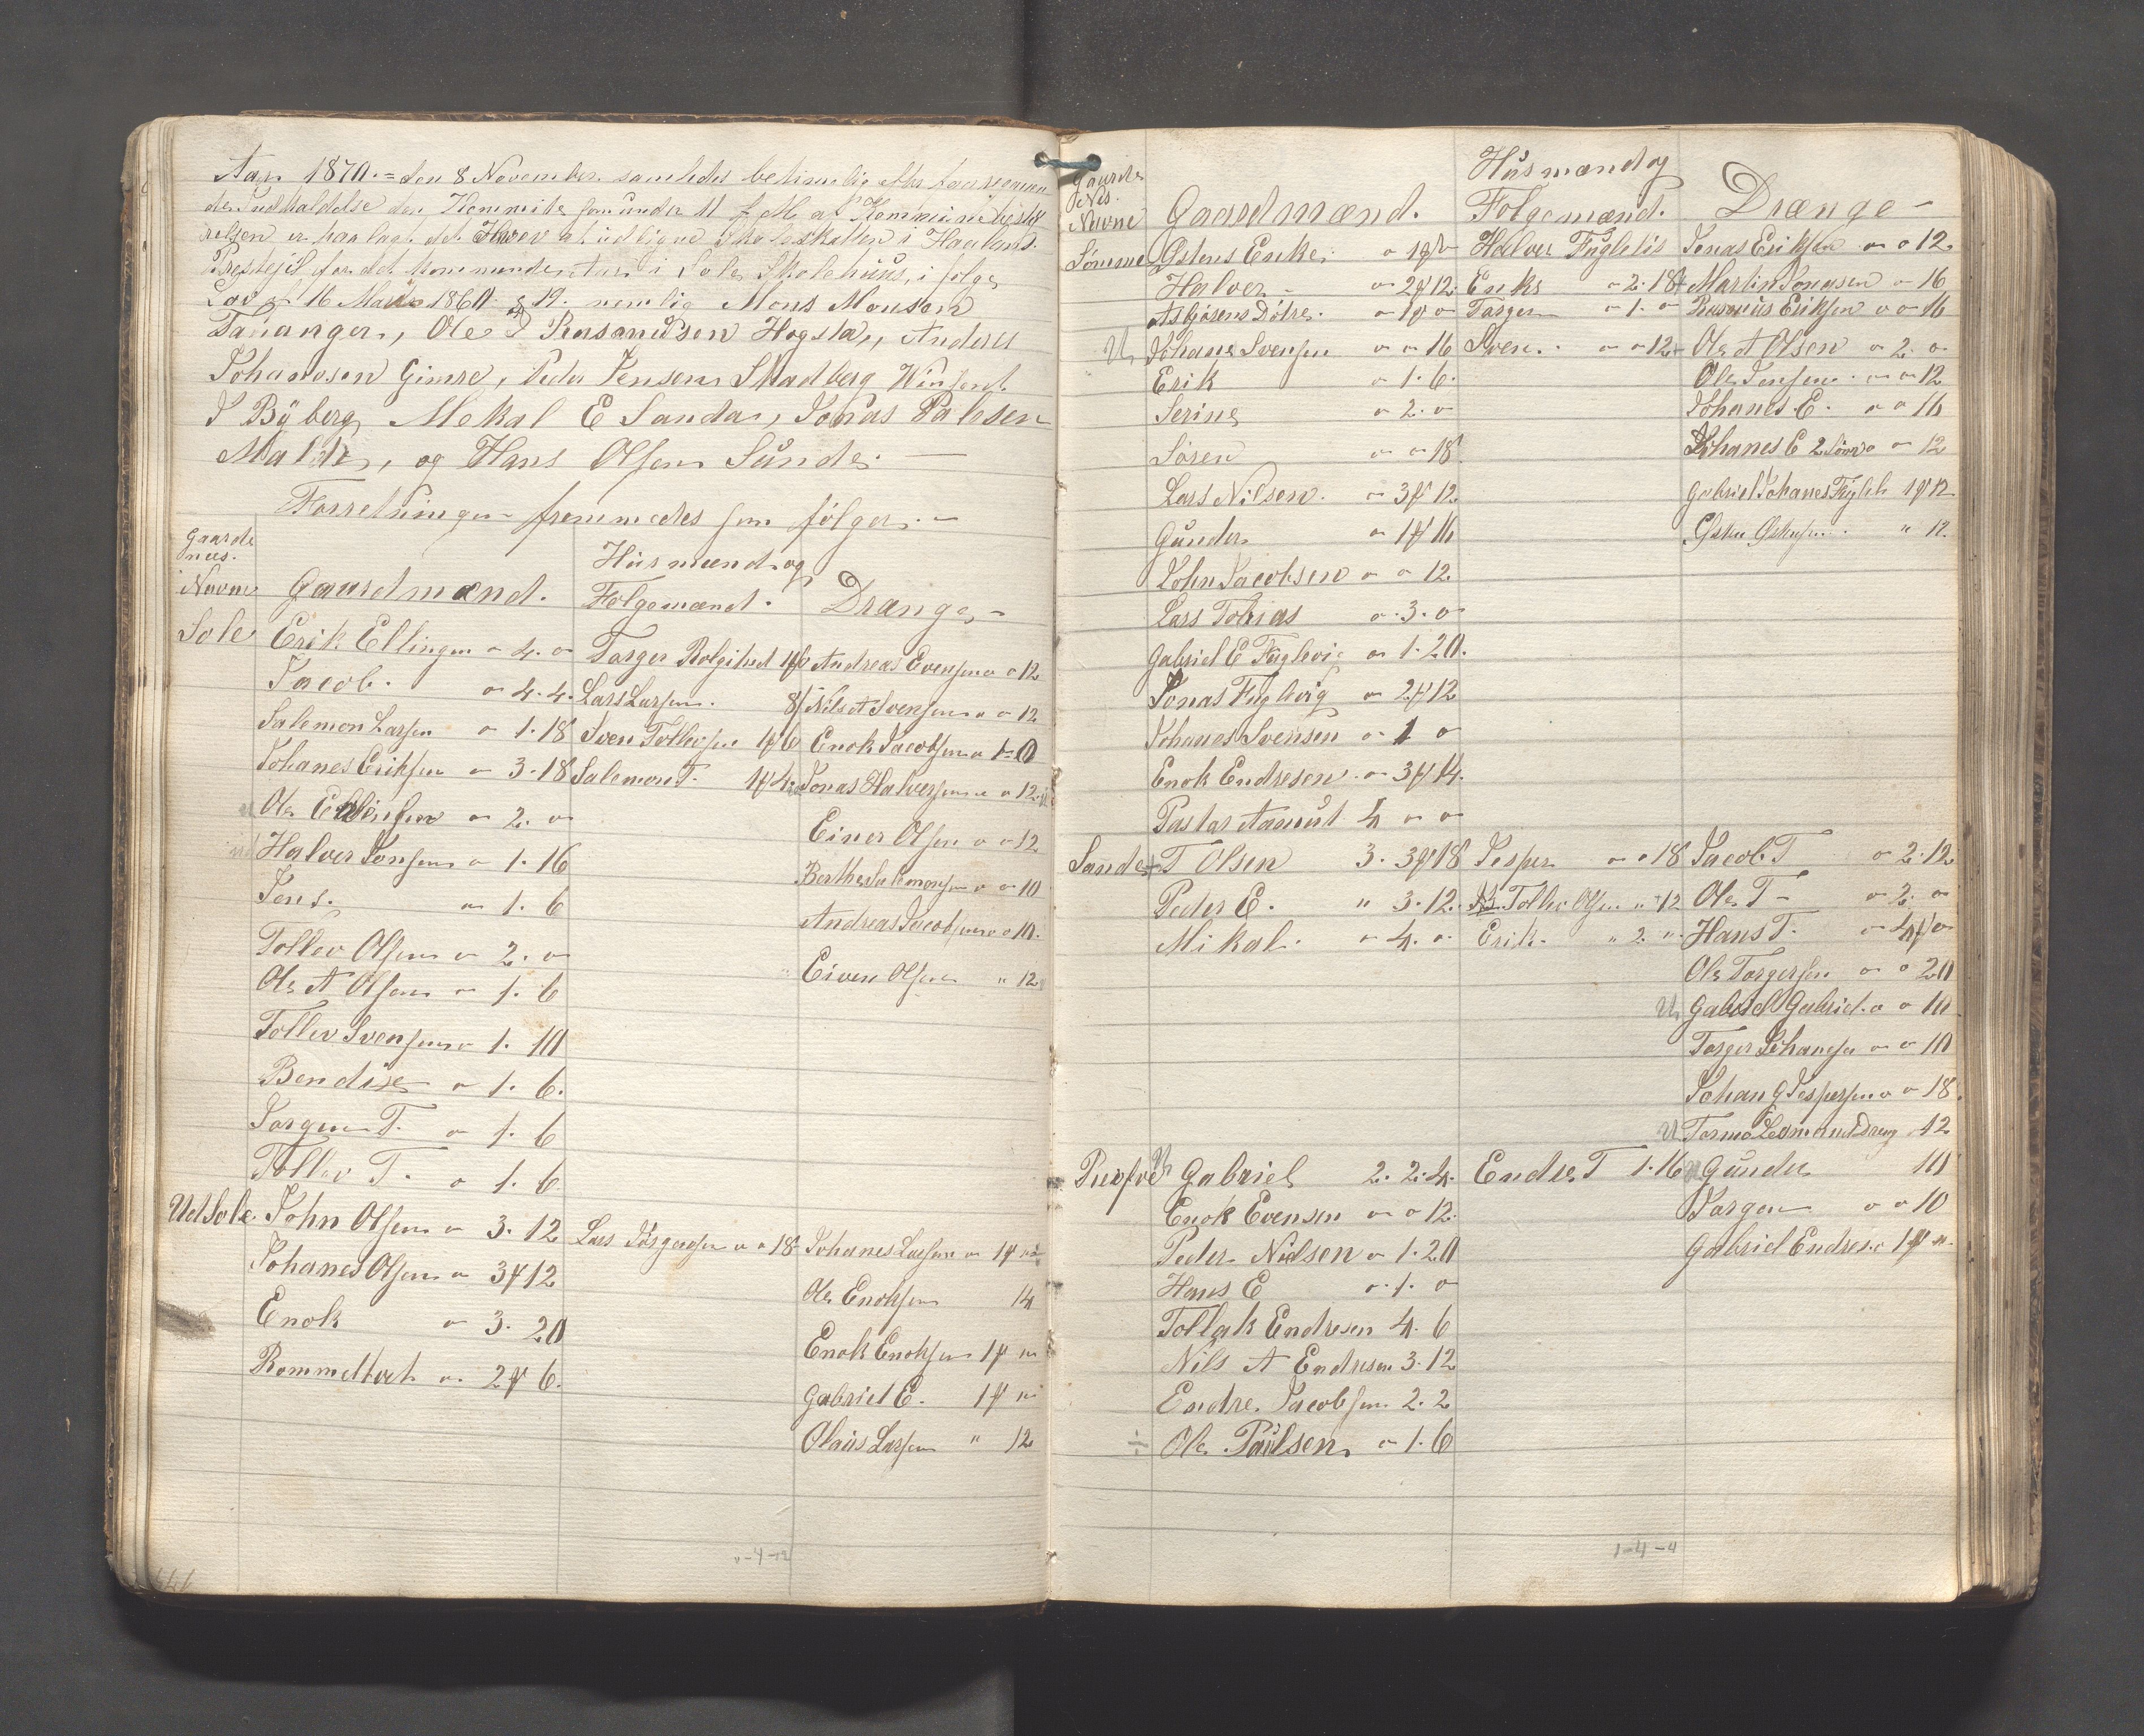 Aar 1870 = den 8 November samledes betimelig efter
den Indkaldelse den Kommite som under 11 f. M. af Kommunebesty
relsen er paalagt det Hverv at udligne Skoleskatten i Haalands
Prestegil for det kommende Aar i Sole Skolehuus, i følge
Lov af 16 Mai 1860 § 12. nemlig Mons Monsen
Tananger, Ole Rasmudsen Hogstad, Anders
Johanesen Gimre, Peder Jensen Stadberg, Winsent
J Byberg, Mekal E Sande, Jonas Palesen
Malde, og Hans Olsen Sunde. —
Forretningen fremmedes som følger. —
Gaarde
nes
Navne Gaardmænd. Husmænd og Følgemænd. Drænge —
Sole Erik Ellingsen " 4. " Torger Rolgihed 1 6 Andreas Evensen " " 12
Jacob. " 4. 4. Lars Larsen. 8 Nils A Svensen " " 12
Salemon Larsen " 1. 18 Sven Tollevsen 1 6 Enok Jacobsen " 1 0
Johanes Eriksen " 3. 18 Salemon T. 1 4 Jonas Halversen " " 12
Ole Ellingsen " 2. "
Einer Olsen " " 12
Halver Jonsen " 1. 16
Berthe Salemonsen " " 10
Jens. " 1. 6
Andreas Jacobsen " " 10.
Tollev Olsen " 2. "
Eiven Olsen " 12
Ole A Olsen " 1. 6
Tollev Svensen " 1. 10
Bendix " 1. 6.
Jørgen T. " 1. 6
Tollev T. " 1. 6
Ud Sole John Olsen " 3. 12 Lars Jørgensen " " 18 Johanes Larsen " 1 "
Johanes Olsen " 3 12
Ole Enoksen 14
Enok " 3. 20
Enok Enoksen 1 "
Rommetvet " 2 6.
Gabriel E. 1 "
Olaus Larsen " 12
" - 4 - 12
Gaarde
Nes
Navne Gaardmænd. Husmænd og Følgemænd. Drænge —
Sømme Østens Enke " 1 " Halver Fuglelis Jonas Eriksen " " 12.
Halver — " 2 12. Enke " 2. 18 Martin Jonasen " 16
Asbjøsens Døtre. " 1 " Torger " 1. " Rasmus Eriksen " " 16
U. Johans Svensen " " 16 Sven. " " 12 Ole A Olsen " 2. "
Erik " 1. 6. Ole Jensen " " 12
Serine " 2. " Johanes E. " " 16
Søren " " 18 Johanes E 2 Sønn " " 12
Lars Nilsen. " 3 12 Gabriel Johanes Fugleli 1 12
Gunder " 1 16 Østen Østensen. " 12.
John Jacobsen " " 12.
Lars Tobias " 3. "
Gabriel E Fuglevig " 1. 20.
Jonas Fuglevig " 2 12
Johanes Svensen " 1 "
Enok Endresen " 3 14.
Pastor Aamodt 4 " "
Sande T Olsen 3. 3 18 Jesper " " 18 Jacob T " 2. 12
Peder E. " 3. 12. Tollev Olsen " 12 Ole T — " 2. "
Mikal. " 4. " Erik. " 2. " Hans T. " 4 "
Ole Torgersen " " 20
U. Gabriel Gabriel. " " 10
Torger Johansen " " 10
Johan G Jespersen " " 18.
U Tormo Ledmand Dreng " 12
U Gabriel 2. 2. 4. Endre T 1. 16 Gunder 10
Enok Evensen " " 12. Jørgen " " 10
Peder Nielsen " 1. 20 Gabriel Endres. " 1 "
Hans E " 1. "
Tollak Endresen 4. 6
Nils A Endresen 3. 12
Endre Jacobsen 2. 2
÷ Ole Paulsen " 1. 6
1 - 4 - 4